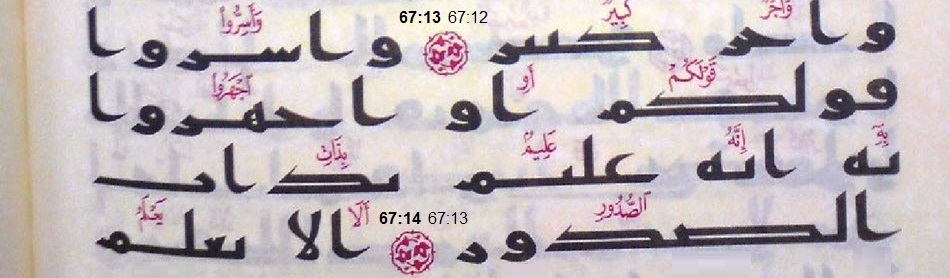 وَأَجْرٌ كَبِيرٌ 67:13 67:12 وَأَسِرُّوا
واحر كبير واسروا
قَوْلَكُمْ أَوِ ٱجْهَرُوا
قولكم او احهروا
بِهِۦٓ إِنَّهُۥ عَلِيمٌۢ بِذَاتِ
به انه عليم بداب
ٱلصُّدُورِ 67:14 67:13 أَلَا يَعْلَمُ
الصدور الا يعلم